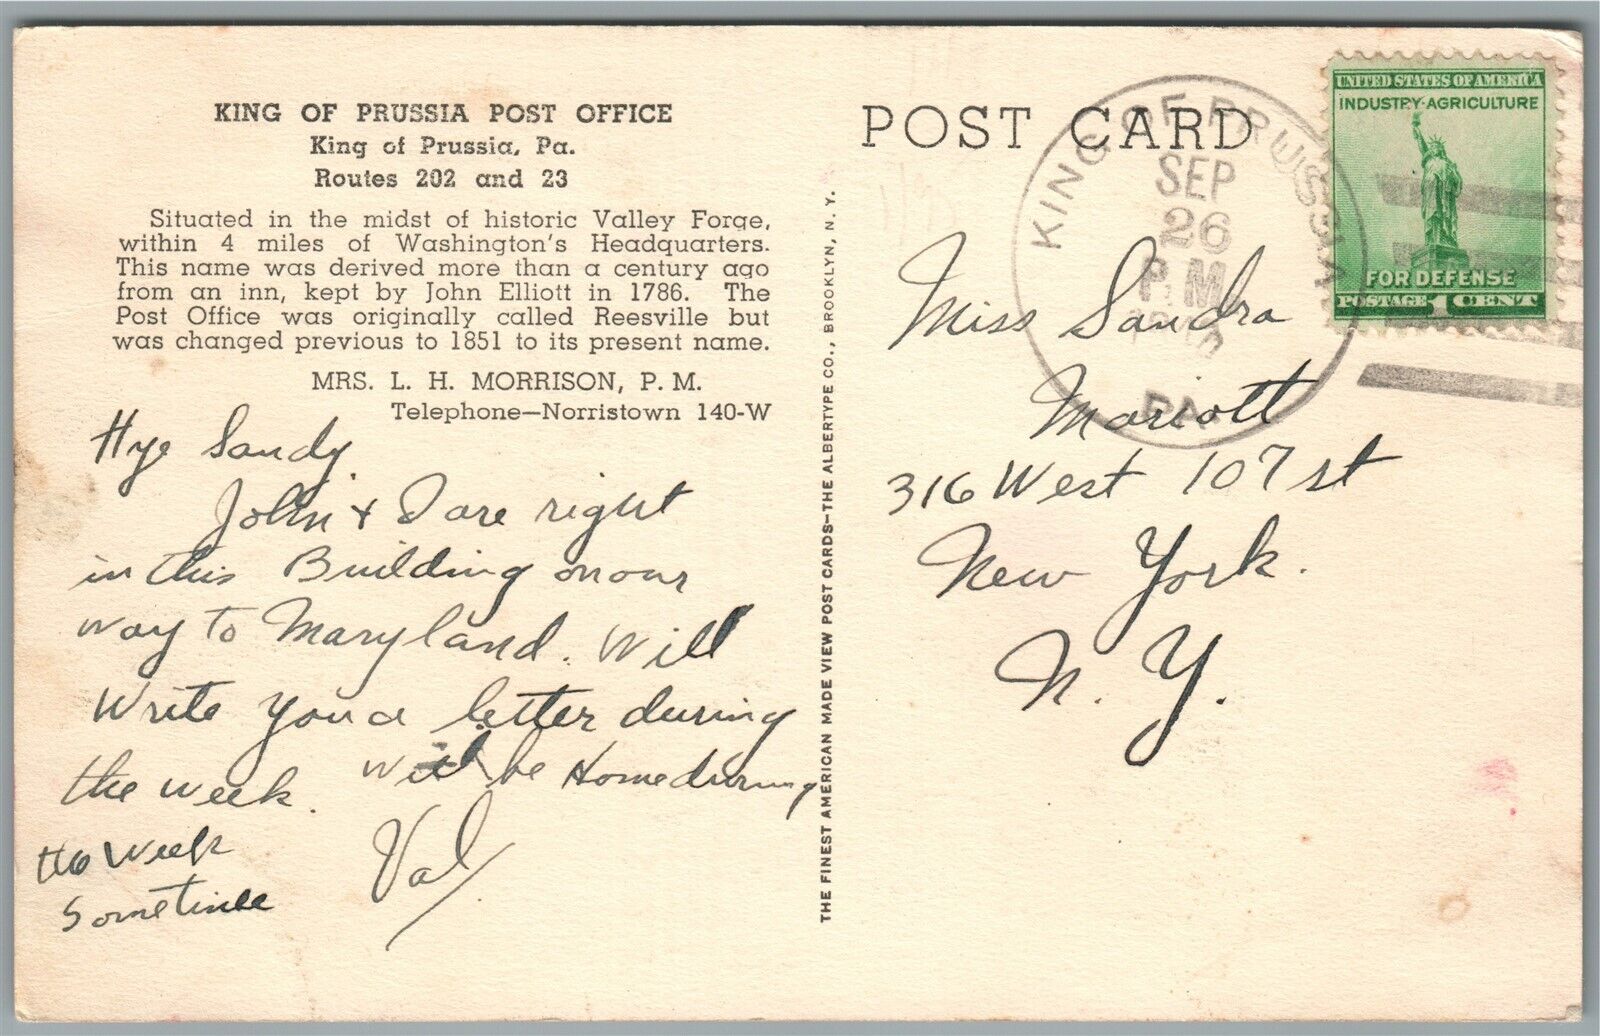 KING OF PRUSSIA POST OFFICE
King of Prussia, Pa.
Routes 202 and 23
Situated in the midst of historic Valley Forge,
within 4 miles of Washington's Headquarters.
This name was derived more than a century ago
from an inn, kept by John Elliott in 1786. The
Post Office was originally called Reesville but
was changed previous to 1851 to its present name.
MRS. L. H. MORRISON, P. M.
Telephone—Norristown 140-W
Hye Sandy.
John & I are right
in this Building on our
way to Maryland. Will
Write you a letter during
the week. Will be Home during
the Week
Sometime
Val
THE FINEST AMERICAN MADE VIEW POST CARDS—THE ALBERTYPE CO., BROOKLYN, N. Y.
POST CARD
KING OF PRUSSIA
SEP
26
P.M
PA
UNITED STATES OF AMERICA
INDUSTRY·AGRICULTURE
FOR DEFENSE
POSTAGE 1 CENT
Miss Sandra
Mariott
316 West 107 st
New York.
N. Y.